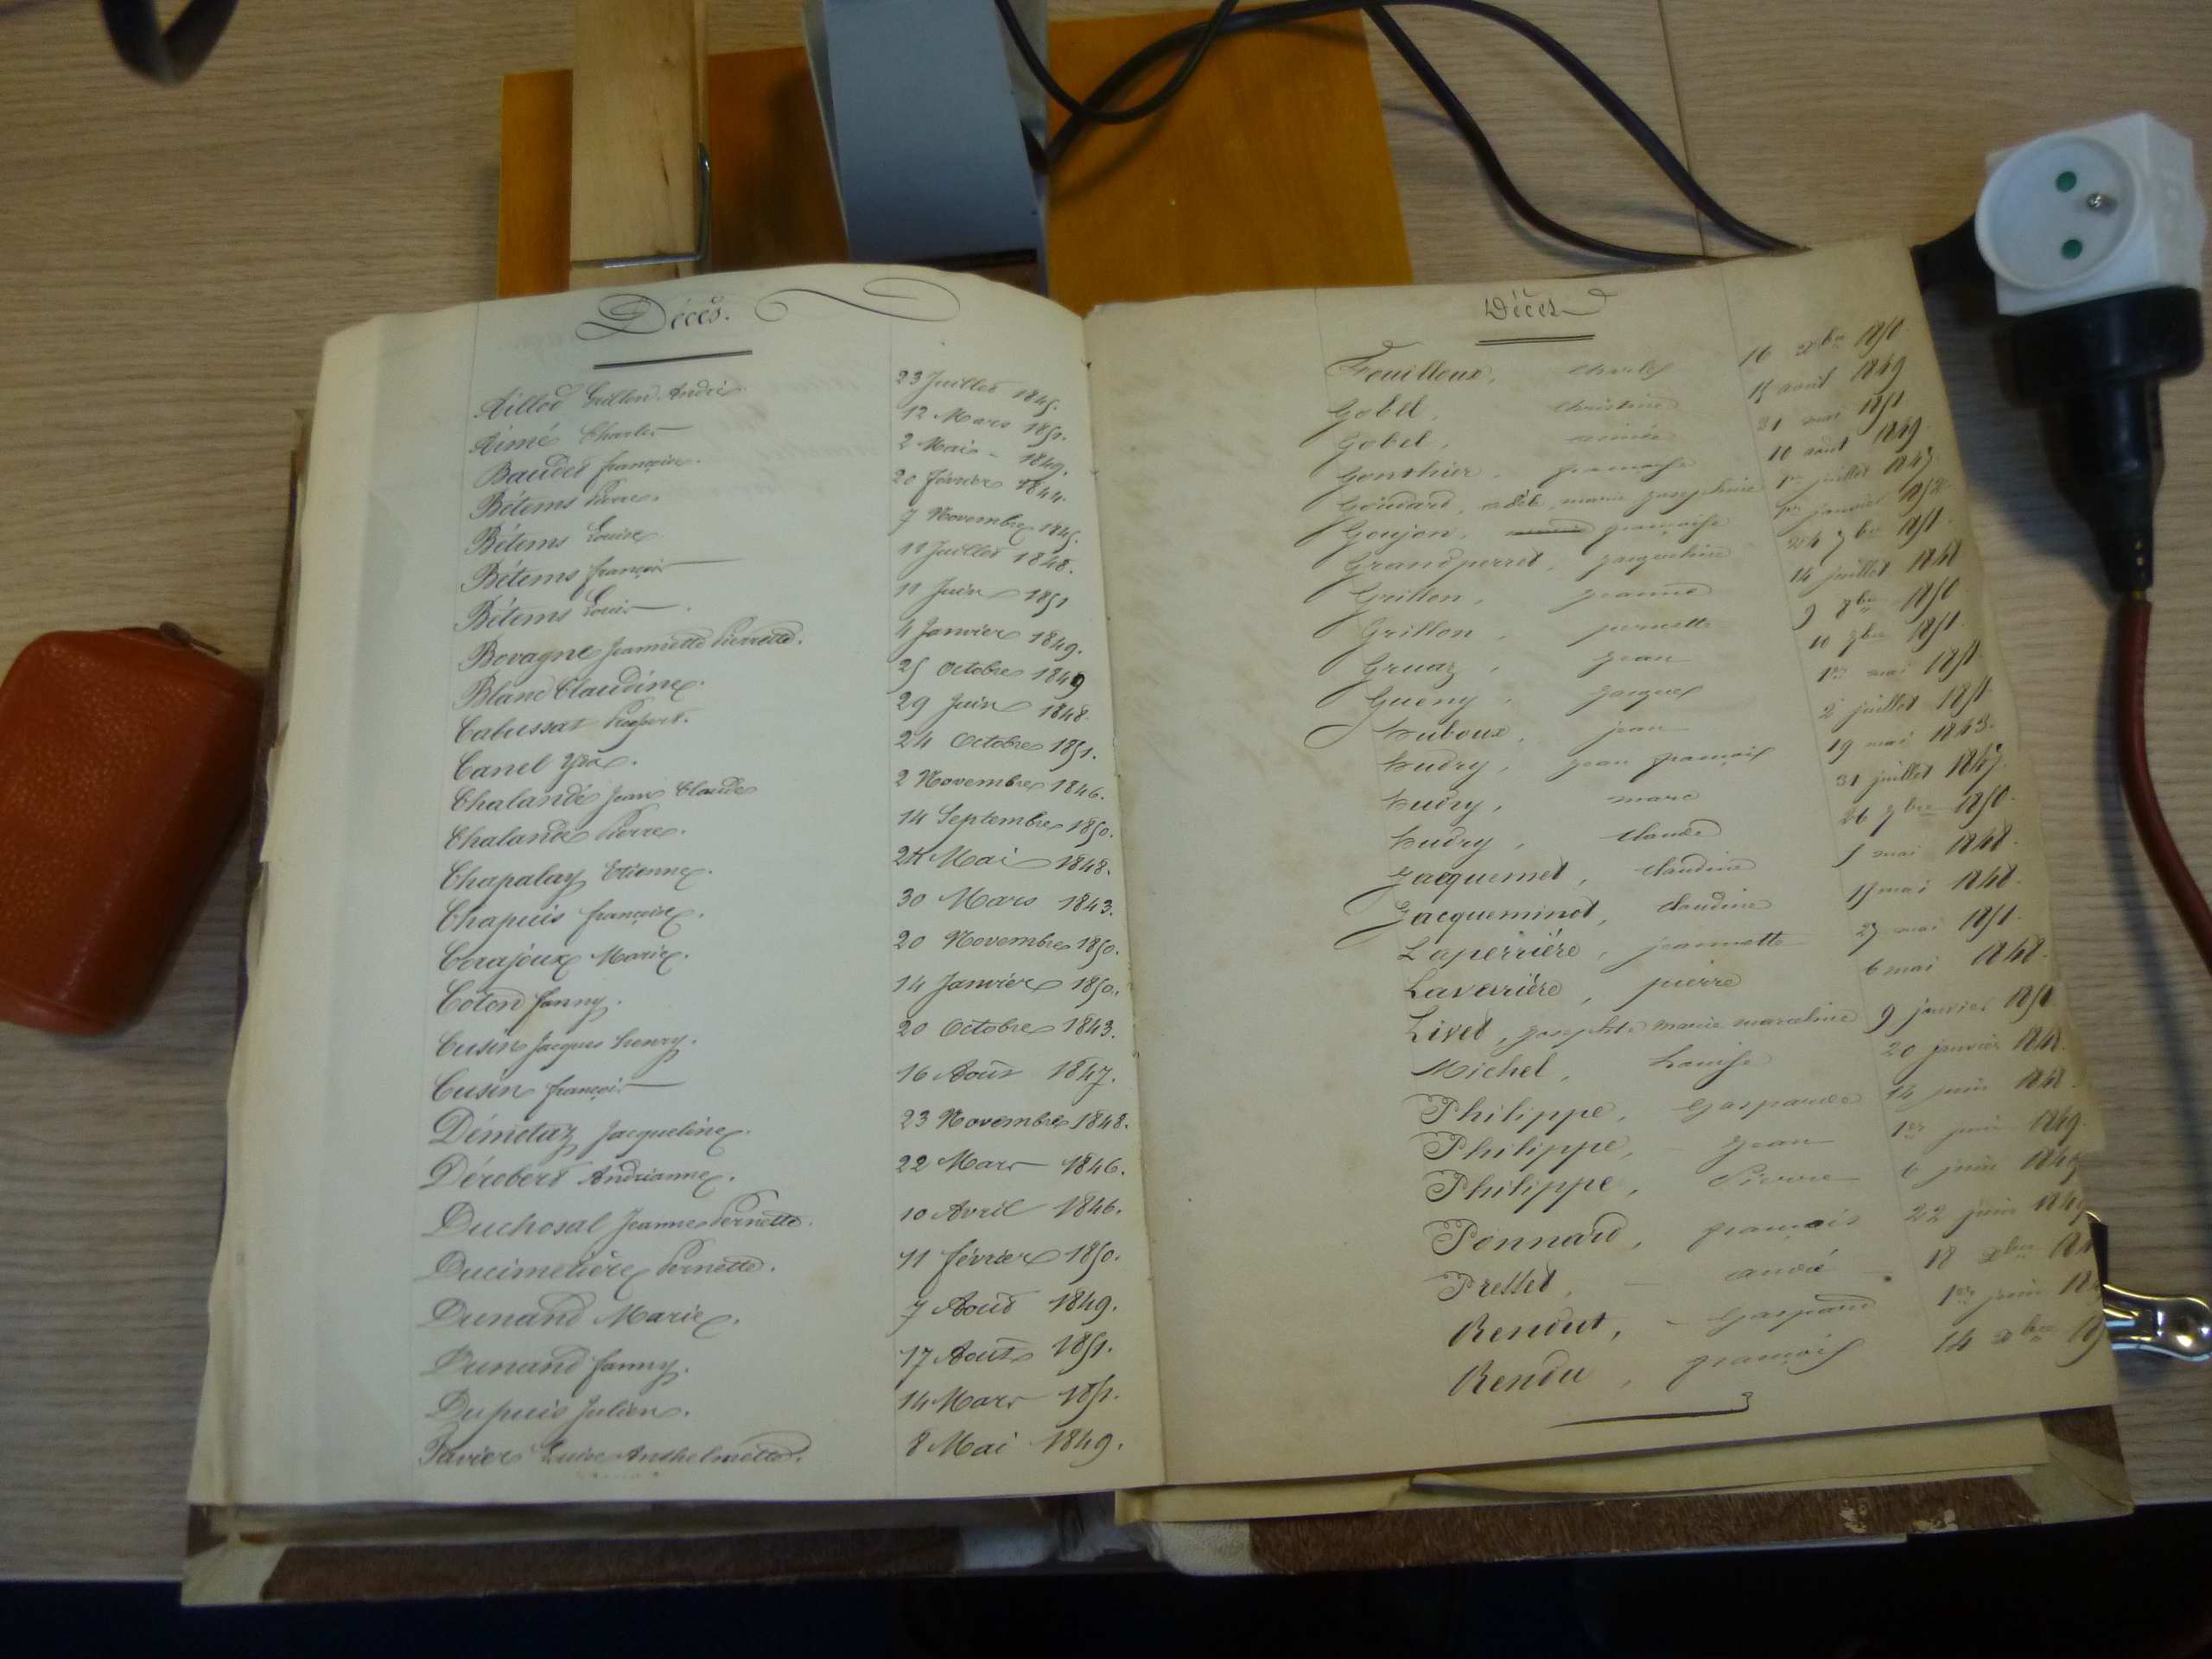 Décès.
Aillod Grillon André 23 Juillet 1845.
Aimé Charles 12 Mars 1851.
Baudet françoise. 2 Mai 1849.
Bétems Pierre. 20 février 1844.
Bétems Louise 7 Novembre 1845.
Bétems françois 11 Juillet 1848.
Bétems Louis 11 Juin 1851
Bovagne Jeannette Pierrette. 4 Janvier 1849.
Blanc Claudine. 25 Octobre 1849
Cabussat Prospert. 29 Juin 1848.
Canel 24 Octobre 1851.
Chalande Jean Claude 2 Novembre 1846.
Chalande Pierre. 14 Septembre 1850.
Chapalay Etienne. Mai 1848.
Chapuis françoise. 30 Mars 1843.
Corajoux Marie. 20 Novembre 1850.
Coton fanny. 14 Janvier 1850.
Cusin Jacques henry. 20 Octobre 1843.
Cusin françois 16 Août 1847.
Démetaz Jacqueline. 23 Novembre 1848.
Dérobert Andrianne. 22 Mars 1846.
Duchosal Jeanne Pernette. 10 Avril 1846.
Ducimetière Pernette. 11 février 1850.
Dunand Marie. 7 Août 1849.
Dunand fanny. 17 Août 1851.
Dupuis Julien. 14 Mars 1851.
Favier Luise Anthelmette. 8 Mai 1849.
Décès
Fouilloux, charles 16 xbre 1850.
Gobel, christine août 1849
Gobel, aimée 21 mai 1851
Gonthier, françoise 10 août 1849.
Goudard, adèle marie josephine 1er juillet
Goujon, françoise 1er janvier 1852.
Grandperret, jacqueline 24 7bre 1851.
Grillon, jeanne 14 juillet 1848
Grillon, pernette 9 8bre 1850
Gruaz, jean 10 7bre 1851.
Gueny, jacques 1er mai 1851.
huboux, jean 2 juillet 1851.
hudry, jean françois 19 mai 1843.
hudry, marc 31 juillet 1847.
hudry, claude 26 7bre 1850.
Jacquemet, claudine mai 1848.
Jacqueminot, claudine mai 1848.
Laperrière, jeannette mai 1851.
Lavarière, pierre 6 mai 1848.
Livet, josephte marie marceline 9 janvier 1851
Michel, Louise 20 janvier 1848.
Philippe, Gasparde 14 juin 1848.
Philippe, jean 1er juin 1849.
Philippe, Pierre 6 juin
Ponnard, françois 22 juin 1849
Prellet, andré 18 xbre
Rendut, Gaspard 1er juin
Rendu, françois 14 xbre